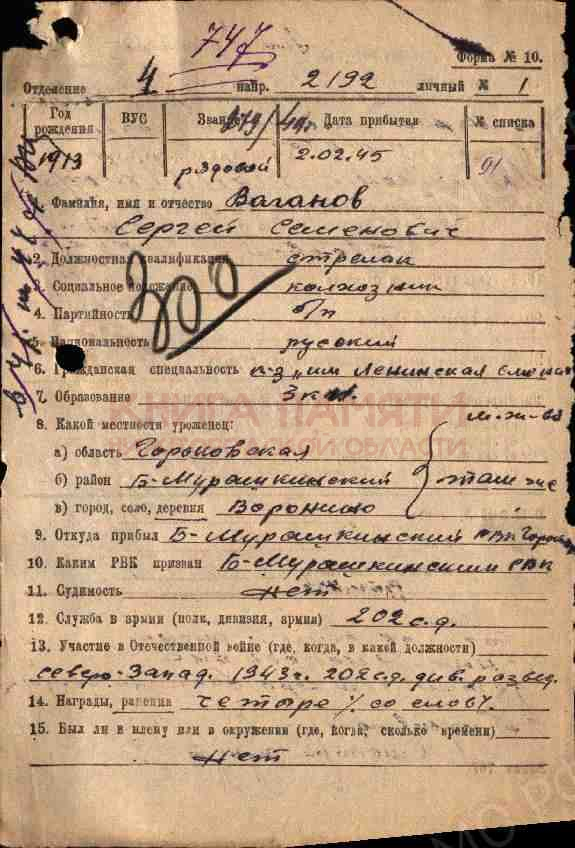 747
Форма № 10.
Отделение 4 напр. 2192 личный № 1
Год рождения ВУС Звание Дата прибытия № списка
1913 рядовой 2.02.45 91
1. Фамилия, имя и отчество Ваганов
Сергей Семенович
2. Должностная квалификация стрелок
3. Социальное положение колхозник
4. Партийность б/п
5. Национальность русский
6. Гражданская специальность к-з "им Ленинская
7. Образование 3 кл.
КНИГА ПАМЯТИ
8. Какой местности уроженец: м-ж-ва
ОБЛАСТИ
а) область Горьковская
б) район Б-Мурашкинский там же
в) город, село, деревня
9. Откуда прибыл Б-Мурашкинский РВК
10. Каким РВК призван Б-Мурашкинским РВК
11. Судимость нет
12. Служба в армии (полк, дивизия, армия) 202 с.д.
13. Участие в Отечественной войне (где, когда, в какой должности)
северо-Запад. 1943 г. 202 с.д. див. развед.
14. Награды, ранения четыре / со слов/.
15. Был ли в плену или в окружении (где, когда, сколько времени)
нет
300
МО РФ